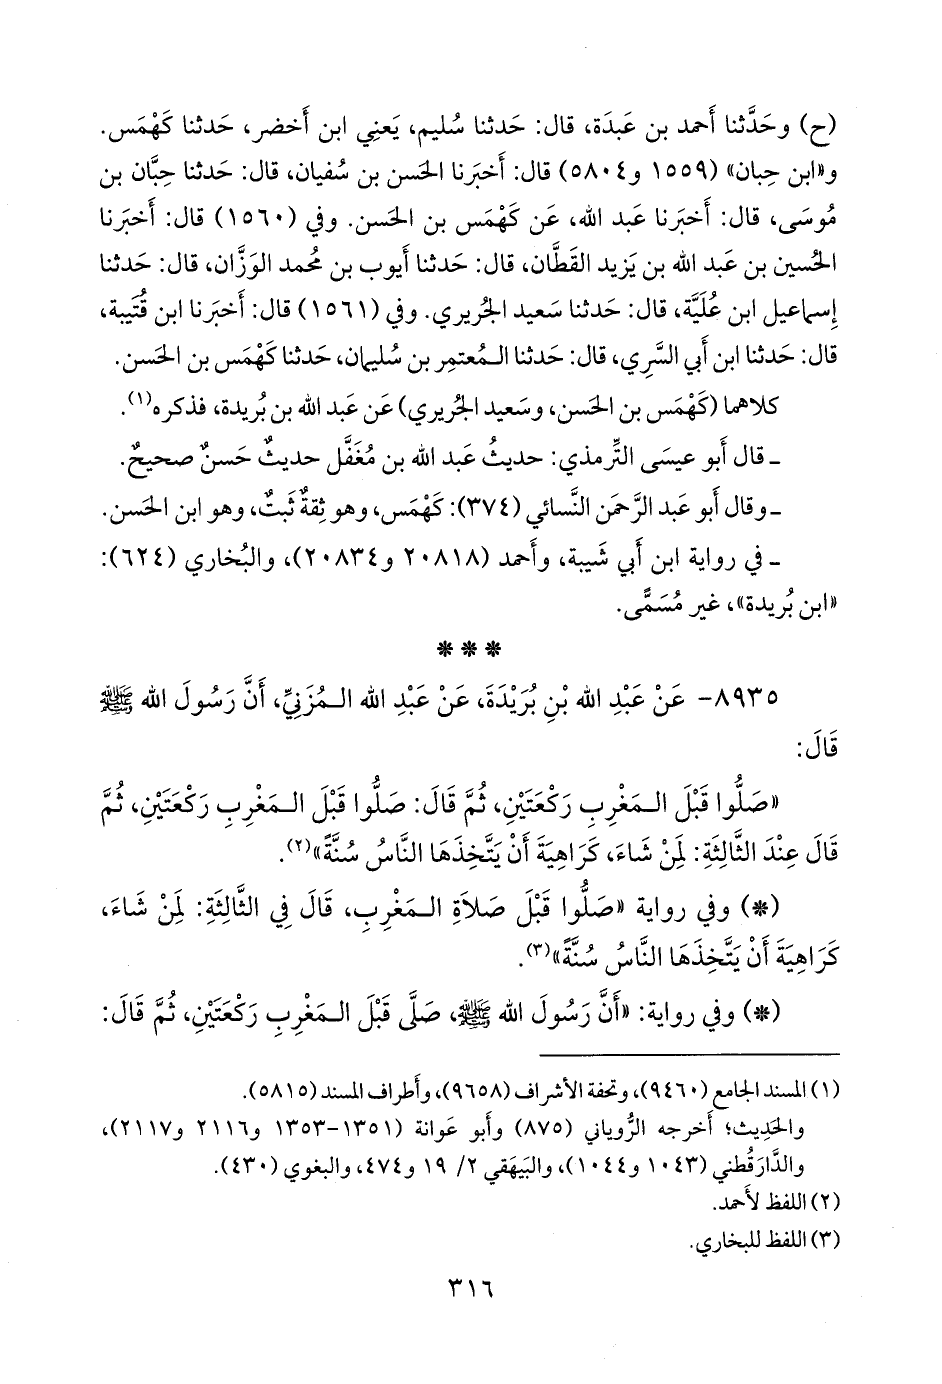 (ح) وحَدَّثنا أَحمد بن عَبدَة، قال: حَدثنا سُليم، يَعنِي ابن أَخضر، حَدثنا كَهْمَس.
و«ابن حِبان» (١٥٥٩ و٥٨٠٤) قال: أَخبَرنا الحَسن بن سُفيان، قال: حَدثنا حِبَّان بن
مُوسَى، قال: أَخبَرنا عَبد الله، عَن كَهْمَس بن الحَسن. وفي (١٥٦٠) قال: أَخبَرنا
الحُسين بن عَبد الله بن يَزيد القَطَّان، قال: حَدثنا أَيوب بن مُحمد الوَزَّان، قال: حَدثنا
إِسماعيل ابن عُلَيَّة، قال: حَدثنا سَعيد الجُريري. وفي (١٥٦١) قال: أَخبَرنا ابن قُتَيبة،
قال: حَدثنا ابن أَبي السَّرِي، قال: حَدثنا المُعتمِر بن سُليمان، حَدثنا كَهْمَس بن الحَسن.
كلاهما (كَهْمَس بن الحَسن، وسَعيد الجُريري) عَن عَبد الله بن بُريدة، فذكره(١).
ـ قال أَبو عيسَى التِّرمذي: حديثُ عَبد الله بن مُغَفَّل حديثٌ حَسنٌ صحيحٌ.
ـ وقال أَبو عَبد الرَّحمَن النَّسائي (٣٧٤): كَهْمَس، وهو ثِقةٌ ثَبتٌ، وهو ابن الحَسن.
ـ في رواية ابن أَبي شَيبة، وأَحمد (٢٠٨١٨ و٢٠٨٣٤)، والبُخاري (٦٢٤):
«ابن بُريدة»، غير مُسَمًّى.
* * *
٨٩٣٥- عَنْ عَبْدِ الله بْنِ بُرَيْدَةَ، عَنْ عَبْدِ الله المُزَنِيِّ، أَنَّ رَسُولَ الله ﷺ
قَالَ:
«صَلُّوا قَبْلَ المَغْرِبِ رَكْعَتَيْنِ، ثُمَّ قَالَ: صَلُّوا قَبْلَ المَغْرِبِ رَكْعَتَيْنِ، ثُمَّ
قَالَ عِنْدَ الثَّالِثَةِ: لِمَنْ شَاءَ، كَرَاهِيَةَ أَنْ يَتَّخِذَهَا النَّاسُ سُنَّةً»(٢).
(*) وفي رواية «صَلُّوا قَبْلَ صَلاَةِ المَغْرِبِ، قَالَ فِي الثَّالِثَةِ: لِمَنْ شَاءَ،
كَرَاهِيَةَ أَنْ يَتَّخِذَهَا النَّاسُ سُنَّةً»(٣).
(*) وفي رواية: «أَنَّ رَسُولَ الله ﷺ، صَلَّى قَبْلَ المَغْرِبِ رَكْعَتَيْنِ، ثُمَّ قَالَ:
(١) المسند الجامع (٩٤٦٠)، وتحفة الأشراف (٩٦٥٨)، وأَطراف المسند (٥٨١٥).
والحَدِيث؛ أَخرجه الرُّوياني (٨٧٥) وأَبو عَوانة (١٣٥١-١٣٥٣ و٢١١٦ و٢١١٧)،
والدَّارَقُطني (١٠٤٣ و١٠٤٤)، والبَيهَقي ٢/ ١٩ و٤٧٤، والبغوي (٤٣٠).
(٢) اللفظ لأَحمد.
(٣) اللفظ للبخاري.
٣١٦